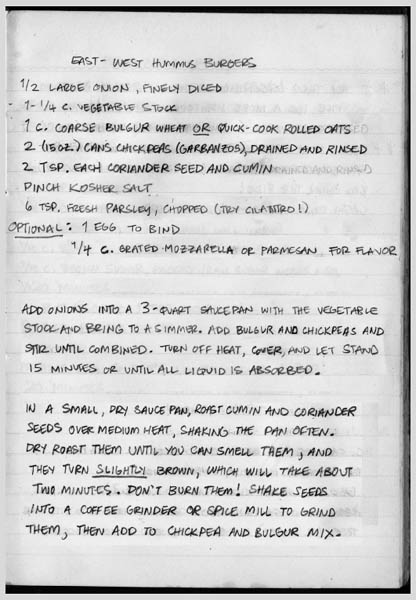 EAST-WEST HUMMUS BURGERS
1/2 LARGE ONION, FINELY DICED
1-1/4 C. VEGETABLE STOCK
1 C. COARSE BULGUR WHEAT OR QUICK-COOK ROLLED OATS
2 (15OZ.) CANS CHICKPEAS (GARBANZOS), DRAINED AND RINSED
2 TSP. EACH CORIANDER SEED AND CUMIN
PINCH KOSHER SALT
6 TSP. FRESH PARSLEY, CHOPPED (TRY CILANTRO!)
OPTIONAL: 1 EGG TO BIND
1/4 C. GRATED MOZZARELLA OR PARMESAN FOR FLAVOR
ADD ONIONS INTO A 3-QUART SAUCEPAN WITH THE VEGETABLE
STOCK AND BRING TO A SIMMER. ADD BULGUR AND CHICKPEAS AND
STIR UNTIL COMBINED. TURN OFF HEAT, COVER, AND LET STAND
15 MINUTES OR UNTIL ALL LIQUID IS ABSORBED.
IN A SMALL, DRY SAUCE PAN, ROAST CUMIN AND CORIANDER
SEEDS OVER MEDIUM HEAT, SHAKING THE PAN OFTEN.
DRY ROAST THEM UNTIL YOU CAN SMELL THEM, AND
THEY TURN SLIGHTLY BROWN, WHICH WILL TAKE ABOUT
TWO MINUTES. DON'T BURN THEM! SHAKE SEEDS
INTO A COFFEE GRINDER OR SPICE MILL TO GRIND
THEM, THEN ADD TO CHICKPEA AND BULGUR MIX.